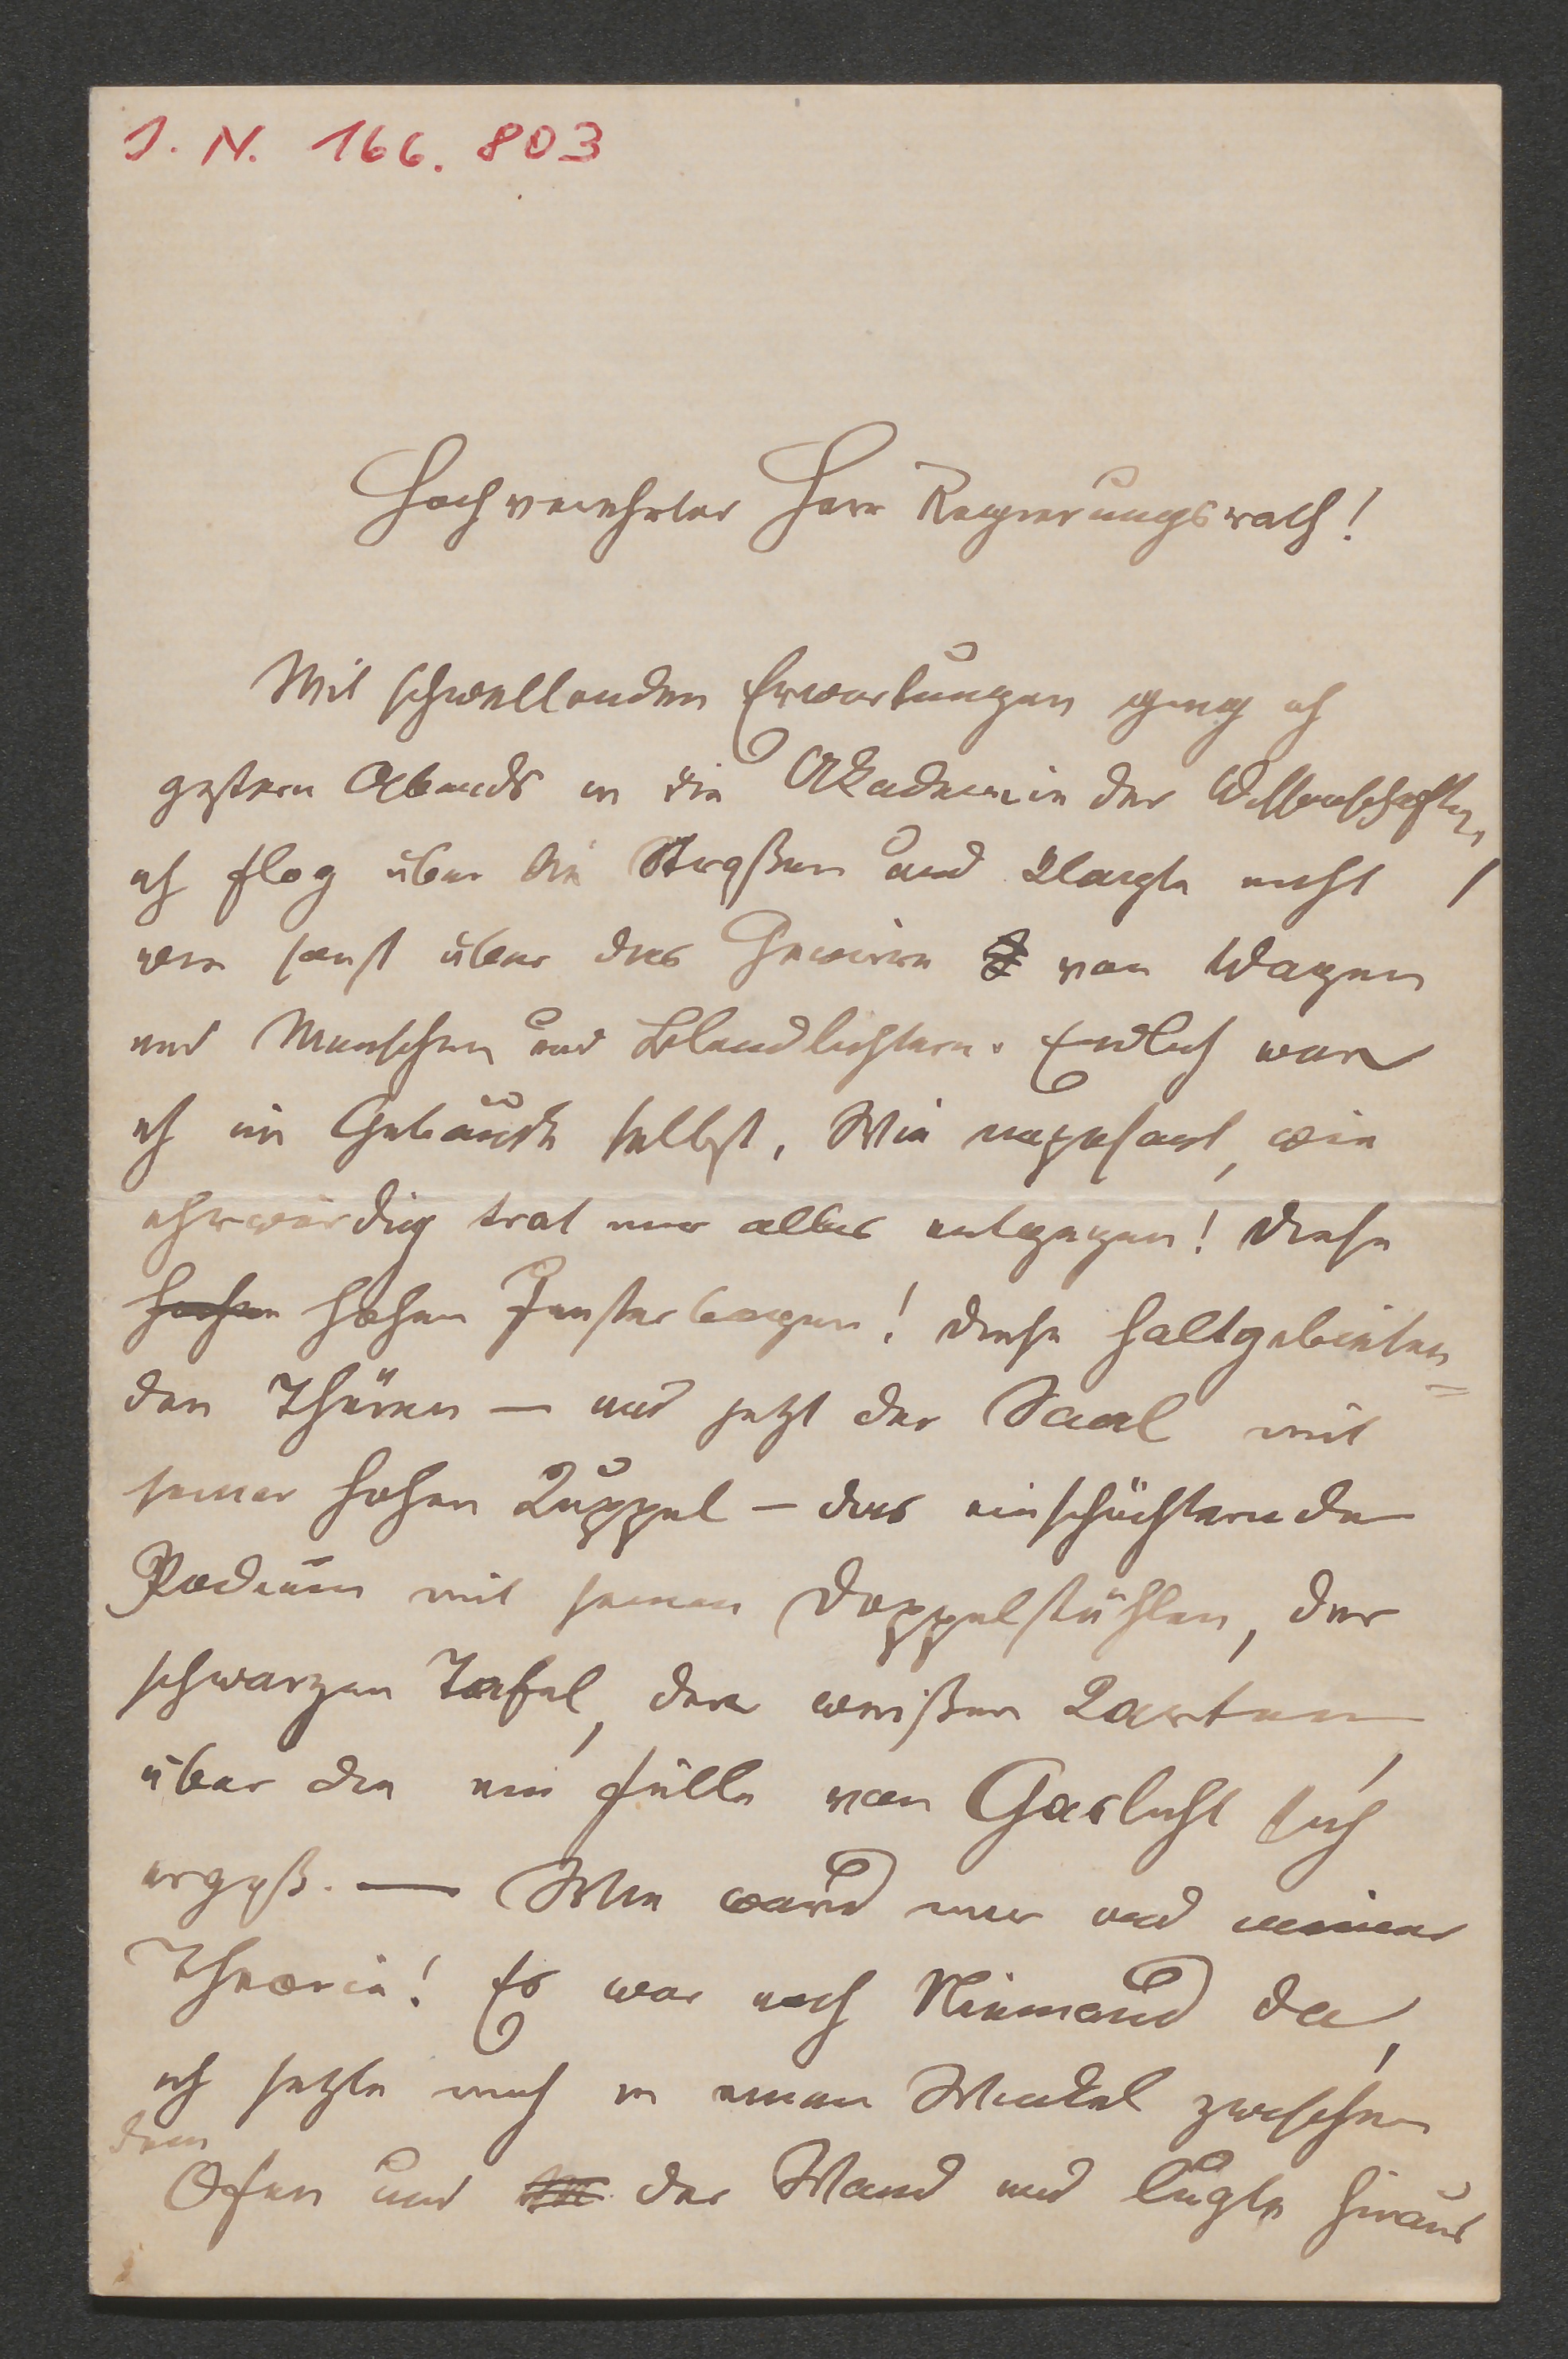 J. N. 166. 803
Hochverehrter Herr Regierungsrath!
Mit schwellenden Erwartungen ging ich
gestern Abends in die Akademie der Wissenschaften,
ich flog über die Straßen und klagte nicht,
wie sonst über das Gewirre von Wagen
und Menschen und Blendlichtern. Endlich war
ich im Gebäude selbst. Wie imposant, wie
ehrwürdig trat mir alles entgegen! Diese
hohen hohen Fensterbogen! Diese haltgebieten=
den Thüren — und jetzt der Saal mit
seiner hohen Kuppel — das einschüchternde
Podium mit seinen Doppelstühlen, der
schwarzen Tafel, den weißen Karten,
über die ein Fülle von Gaslicht sich
ergoß. — Wie ward mir und meiner
Theorie! Es war noch Niemand da,
ich setzte mich in einen Winkel zwischen
dem
Ofen und der Wand und lugte hinaus